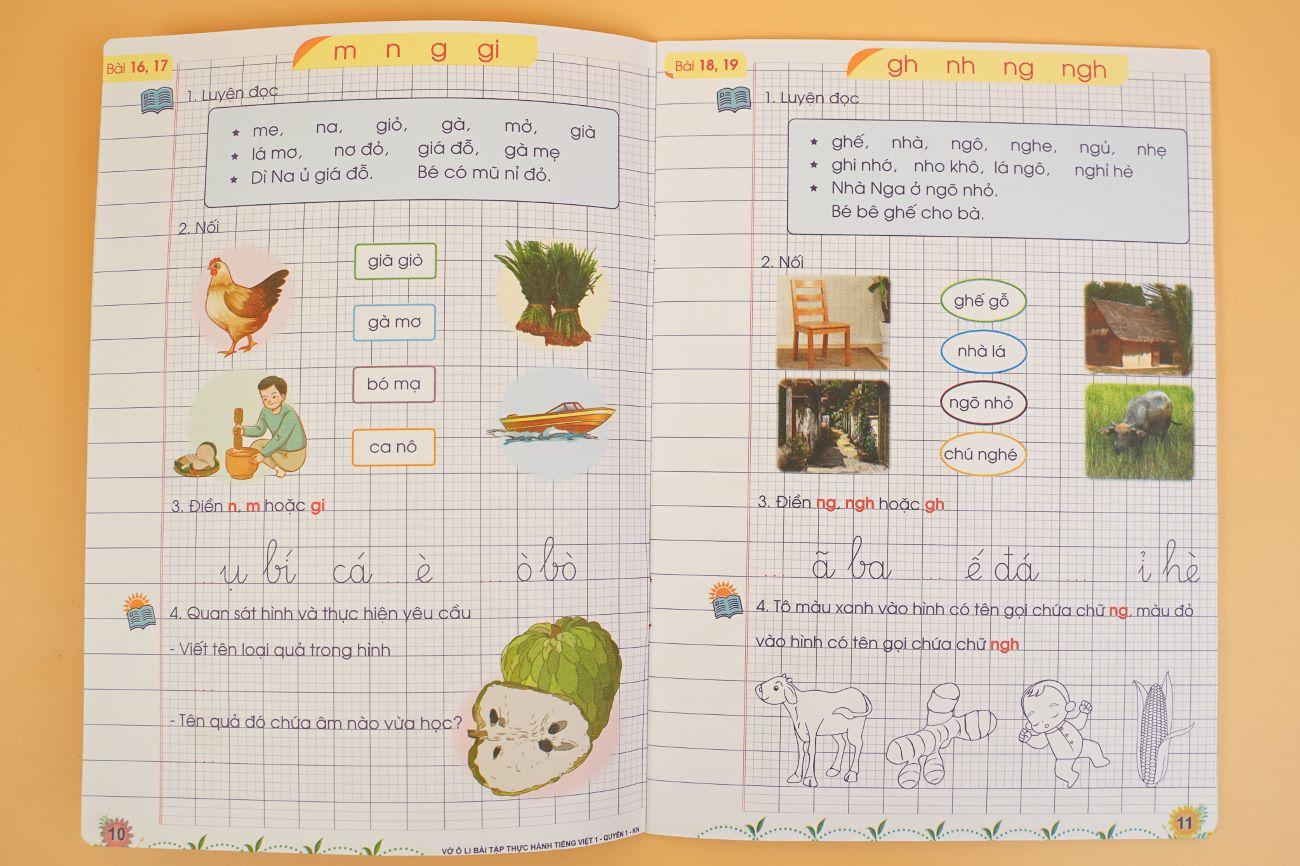 Bài 16, 17
m n g gi
1. Luyện đọc
★ me, na, giỏ, gà, mở, già
★ lá mơ, nơ đỏ, giá đỗ, gà mẹ
★ Dì Na ủ giá đỗ. Bé có mũ nỉ đỏ.
2. Nối
giã giò
gà mơ
bó mạ
ca nô
3. Điền n, m hoặc gi
.... ụ bí cá .... è .... ò bò
4. Quan sát hình và thực hiện yêu cầu
- Viết tên loại quả trong hình
....
- Tên quả đó chứa âm nào vừa học?
....
10
VỞ Ô LI BÀI TẬP THỰC HÀNH TIẾNG VIỆT 1 - QUYỂN 1 - KN
Bài 18, 19
gh nh ng ngh
1. Luyện đọc
★ ghế, nhà, ngô, nghe, ngủ, nhẹ
★ ghi nhớ, nho khô, lá ngô, nghỉ hè
★ Nhà Nga ở ngõ nhỏ.
Bé bê ghế cho bà.
2. Nối
ghế gỗ
nhà lá
ngõ nhỏ
chú nghé
3. Điền ng, ngh hoặc gh
.... ã ba .... ế đá .... ỉ hè
4. Tô màu xanh vào hình có tên gọi chứa chữ ng, màu đỏ
vào hình có tên gọi chứa chữ ngh
11